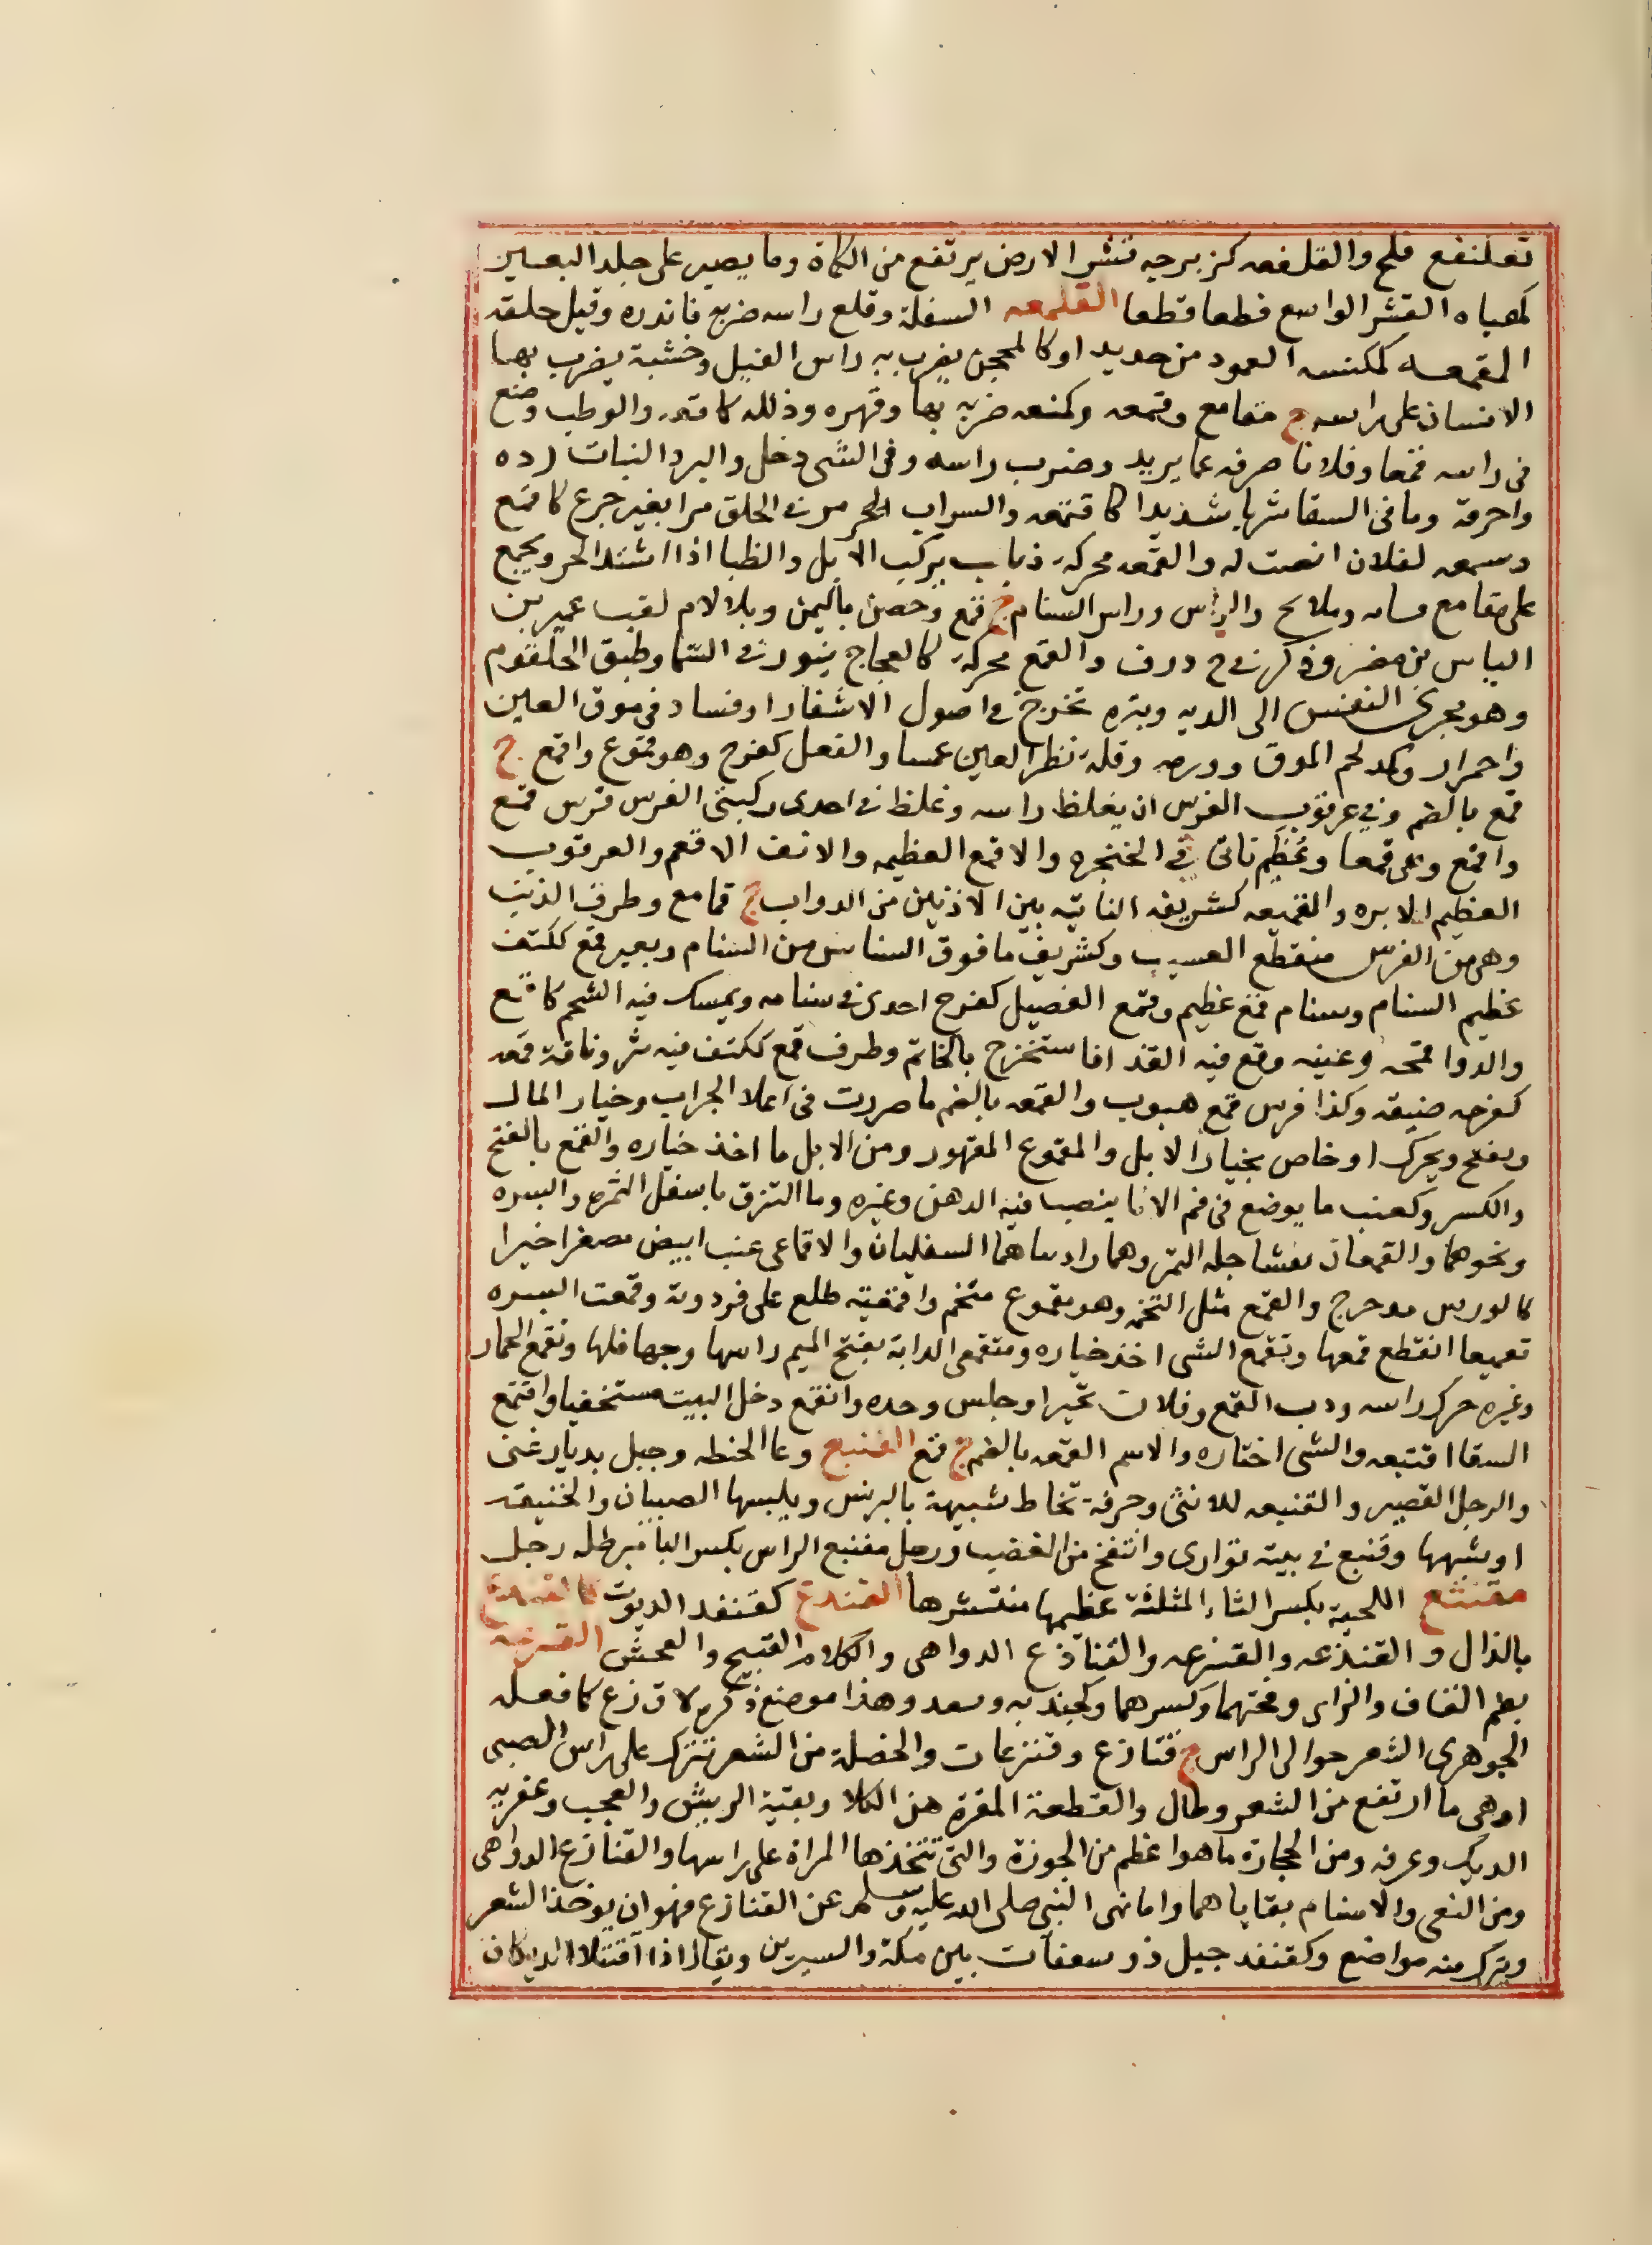 تقلنفع فلم والقلفعه كزبرجه قشر الارض يرتفع من الكماة وما يصير على جلد البعير
كهياه القشر الواسع قطعا قطعا القلمعه السفلة وقلمع راسه ضربه فاندره وقيل حلقه
المقمعه كمكنسه العمود من حديد او كالمحجن يضرب به راس الفيل وخشبة يضرب بها
الانسان على راسه ج مقامع وقمعه كمنعه ضربه بها وقهره وذلله كاقمعه والوطب وضع
فى راسه قمعا وفلانا صرفه عما يريد وضرب راسه وفى الشى دخل والبرد النبات رده
واحرقه وما فى السقا شربه شديدا كاقتمعه والشراب مر فى الحلق مرا بغير جرع كاقمع
وسمعه لفلان انصت له والقمعه محركة ذباب يركب الابل والظبا اذا اشتد الحر ويجمع
على مقامع وملامح والراس وراس السنام ج قمع وحصن باليمن وبلا لام لقب عمير بن
الياس بن مضر وذكر فى خ ن د ف والقمع محركة كالعجاج يثور فى السما وطبق الحلقوم
وهو مجرى النفس الى الريه وبثره تخرج فى اصول الاشفار او فساد فى موق العين
واحمرار وكمد لحم الموق وورمه وقلة نظر العين عمشا والفعل كفرح وهو قموع واقمع ج
قمع بالضم وفى عرقوب الفرس ان يغلظ راسه وغلظ فى احدى ركبتى الفرس فرس قمع
واقمع وهى قمعا وعظم ناتى فى الحنجره والاقمع العظيمه والانف الاقعم والعرقوب
العظيم الابره والقميعه كشريفه الناتيه بين الاذنين من الدواب ج قمامع وطرف الذنب
وهى من الفرس منقطع العسيب وكشريف ما فوق السناسن من السنام وبعير قمع ككتف
عظيم السنام وسنام قمع عظيم وقمع الفصيل كفرح احدى فى سنامه وتمسك فيه الشحم كاقمع
والدوا قمحه وعينه وقع فيه القذا فاستخرج بالخاتم وطرف قمع ككتف فيه بثر وناقة قمعه
كفرحه ضبعه وكذا فرس قمع هبوب والقمعه بالضم ما صررت فى اعلا الجراب وخيار المال
ويفتح ويحرك او خاص بخيار الابل والمقموع المقهور ومن الابل ما اخذ خياره والقمع بالفتح
والكسر وكعنب ما يوضع فى فم الانا يصب فيه الدهن وغيره وما التزق باسفل التمره والبسره
ونحوهما والقمعان جله التمر وهما زاويتاهما السفليتان والاقماعى عنب ابيض يصفر اخيرا
كالورس مدحرج والقمع مثل التخمه وهو مقموع متخم واقمعته طلع على فرددته وقمعت البسره
تقميعا انقطع قمعها وتقمع الشى اخذ خياره ومتقمع الدابة بفتح الميم راسها وجحافلها وتقمع الحمار
وغيره حرك راسه وذب القمع وفلان تحير او جلس وحده وانقمع دخل البيت مستخفيا واقتمع
السقا اقتبعه والشى اختاره والاسم القمعه بالضم ج قمع القنبع وعا الحنطه وجبل بديار غنى
والرجل القصير والقنبعه للانثى وخرقة تخاط شبيهة بالبرنس ويلبسها الصبيان والخنبعه
او شبهها وقنبع فى بيته توارى وانتفخ من الغضب ورجل مقنبع الراس بكسر البا مبرطله رجل
مقنثع اللحية بكسر الثاء المثلثة عظيمها منتشرها القندع كقنفد الديوث كالقنذع
بالذال و القنذعه والقنزعه والقناذع الدواهى والكلام القبيح والفحش القنزعه
بضم القاف والزاى وفتحهما وكسرهما وكجندبه وهذا موضع ذكره لا ق ز ع كما فعله
الجوهرى الشعر حوالى الراس ج قنازع وقنزعات والخصلة من الشعر تترك على راس الصبى
او هى ما ارتفع من الشعر وطال والقطعة المفرة من الكلا وبقية الريش والعجب وعفريه
الديك وعرفه ومن الحجارة ما هو اعظم من الجوزة والتى تتخذها المراة على راسها والقنازع الدواهى
ومن النصى والاسنام بقاياهما واما نهى النبى صلى الله عليه وسلم عن القنازع فهو ان يوخذ الشعر
ويترك منه مواضع وكقنفد جبل ذو سعفات بين مكة والسيرين ويقال اذا اقتتلا الديكان